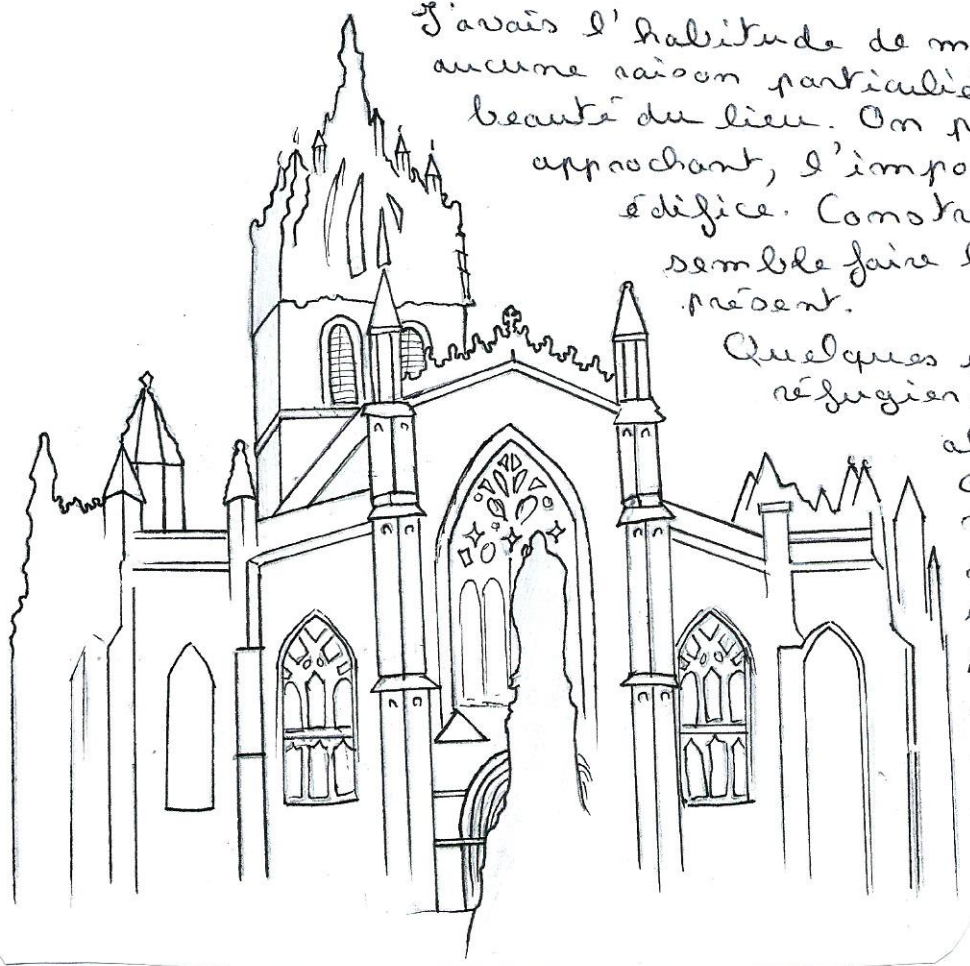 J'avais l'habitude de m
aucune raison particuliè
beauté du lieu. On p
approchant, l'impo
édifice. Constr
semble faire l
présent.
Quelques
réfugier